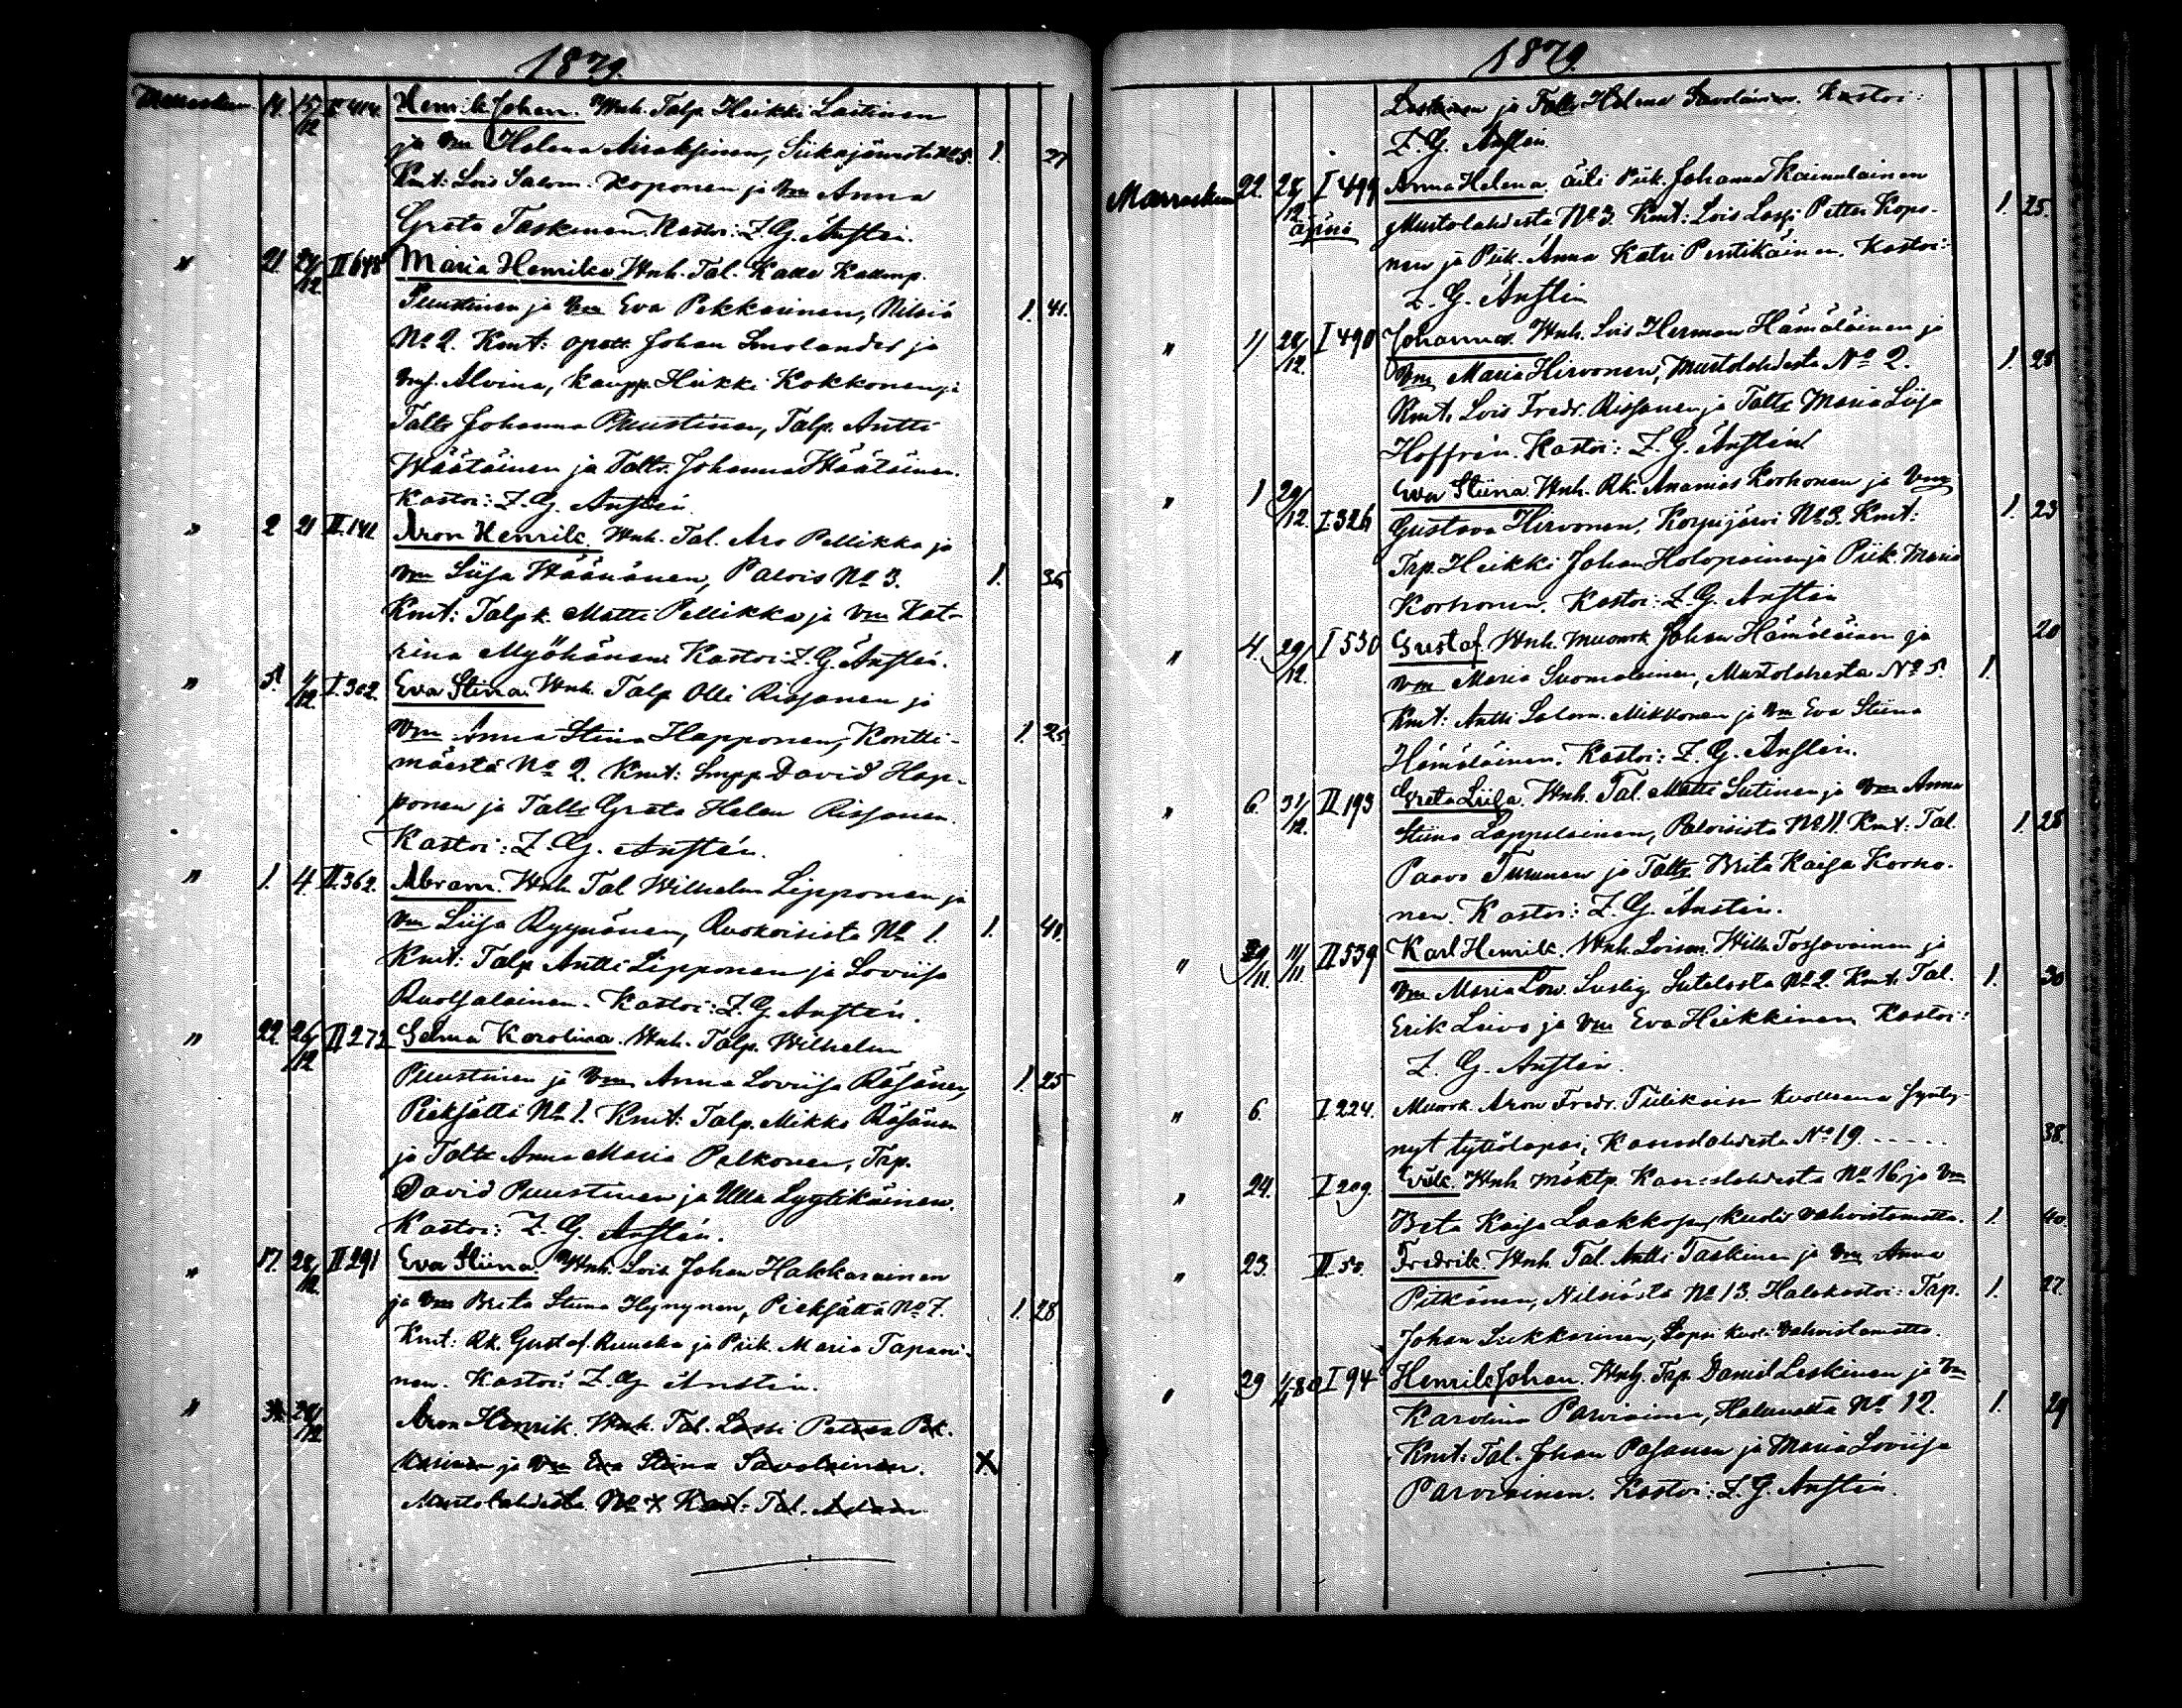 1879.
Marraskuu 14. 15/12 II 414. Henrik Johan. Wnh. Talp. Heikki Laitinen
ja Vm Helena Airaksinen, Siikajärvestä No 5. 1. 27
Kmt: Lois Salom. Koponen ja Vm Anna
Greta Taskinen. Kastoi: Z. G. Anstén.
" 21 24/12 II 648 Maria Henrika Wnh. Tal. Kalle Kallenp.
Puustinen ja Vm Eva Pekkarinen, Nilsiä 1. 41.
No 2. Kmt: opett. Johan Smolander ja
Alvina, Kaupp. Heikki Kokkonen ja
Taltr Johanna Puustinen, Talp. Antti
Wäätäinen ja Taltr. Johanna Wäätäinen.
Kastoi: Z. G. Anstén.
" 2 21 II.141 Aron Henrik. Wnh. Tal. Aro Pellikka ja
Vm Liisa Väänänen, Palois No 3. 1. 36
Kmt: Talp k. Matti Pellikka ja Vm Kat-
rina Myöhänen. Kastoi: Z. G. Anstén.
" 5. 4/12 I.302. Eva Stina. Wnh. Talp Olli Rissanen ja
Vm Anna Stina Happonen, Kontti- 1. 25
mäestä No 2. Kmt: David Hap-
ponen ja Taltr Greta Helen Rissanen.
Kastoi: Z. G. Anstén.
" 1. 4. II.362. Abram. Wnh. Tal Wilhelm Lipponen ja
Vm Liisa Ryynänen, Ruokoisista No 1. 1. 41.
Kmt: Talp Antti Lipponen ja Loviisa
Ruotsalainen. Kastoi: Z. G. Anstén.
" 22 26/12 II 272 Selma Karolina. Wnh. Talp. Wilhelm
Puustinen ja Vm Anna Loviisa Räsänen, 1. 25
Pieksätti No 1. Kmt: Talp. Mikko Räsänen
ja Taltr Anna Maria Pelkonen, Tap.
David Puustinen ja Ulla Lyytikäinen.
Kastoi: Z. G. Anstén.
" 17. 28/12 II 291 Eva Stiina. Wnh. Lois. Johan Hakkarainen
ja Vm Brita Stina Hynynen, Pieksättä No 7. 1. 28
Kmt: Rk. Gustaf ja Piik. Maria Tapani-
nen. Kastoi: Z. G. Anstén.
" 28/12 Aron Henrik. Wnh. Tal. Lassi
ja Vm Eva Stina Savolainen. X
Mustolahdesta No Kmt: Tal. Adam
1879.
Leskinen ja Taltr Helena Savolainen. Kastoi:
Z. G. Anstén.
Marraskuu 22. 28/12 I 499 Anna Helena, äiti Piik. Johanna Kainulainen
äpärä Mustolahdesta No 3. Kmt: Lois Lassi Petter Kopo- 1. 25.
nen ja Piik. Anna Katri Pentikäinen. Kastoi:
Z. G. Anstén
" 11 28/12. I 490 Johannes. Wnh. Lois Herman Hämäläinen ja
Vm Maria Hirvonen, Mustolahdesta No 2. 1. 28
Kmt. Lois Fredr. Rissanen ja Taltr Maria Liisa
Hoffrén. Kastoi: Z. G. Anstén
" 1 29/12. I 326 Eva Stiina. Wnh. Rk. Ananias Korhonen ja Vm
Gustava Hirvonen, Korpijärvi No 3. Kmt: 1. 23
Tap. Heikki Johan Holopainen ja Piik. Maria
Korhonen. Kastoi: Z. G. Anstén
" 4. 29/12. I 530 Gustaf. Wnh. Muonrk Johan Hämäläinen ja 20
Vm Maria Suomalainen, Mustolahdesta No 5. 1.
Kmt: Antti Salom. Mikkonen ja Vm Eva Stiina
Hämäläinen. Kastoi: Z. G. Anstén.
" 6. 31/12. II 193 Greta Liisa. Wnh. Tal. Matti Sutinen ja Vm Anna
Stiina Lappalainen, Paloisista No 11. Kmt: Tal. 1. 28
Paavo Turunen ja Taltr Brita Kaisa Korho-
nen. Kastoi: Z. G. Anstén.
" 11/11. II 539 Karl Henrik. Wnh. Loism. Wilh. Tossavainen ja
Vm Maria Lov. Sutelasta No 2. Kmt. Tal. 1. 30
Erik Leivo ja Vm Eva Heikkinen. Kastoi:
Z. G. Anstén.
" 6. I 224. Muonrk. Aron Fredr. Tiilikaisen kuolleena synty-
nyt tyttölapsi, Kaaraslahdesta No 19 . . . . . 38.
" 24. I 209. Erik. Wnh mäktp. Kaaraslahdesta No 16 ja Vm
Beta Kaisa Laakkonen, kuoli vahvistamatta. 1. 40.
" 23. II 50. Fredrik. Wnh. Tal. Antti Taskinen ja Vm Anna
Pitkänen, Nilsiästä No 13. Hätäkastoi: Tap. 1. 27.
Johan Sukkarinen, Lapsi kuoli vahvistamatta.
" 29 1/1 80 I 94 Henrik Johan. Wnh. Tap. Daniel Leskinen ja Vm
Karolina Parviainen, Halunasta No 12. 1. 29
Kmt: Tal. Johan Pasanen ja Maria Loviisa
Parviainen. Kastoi: Z. G. Anstén.